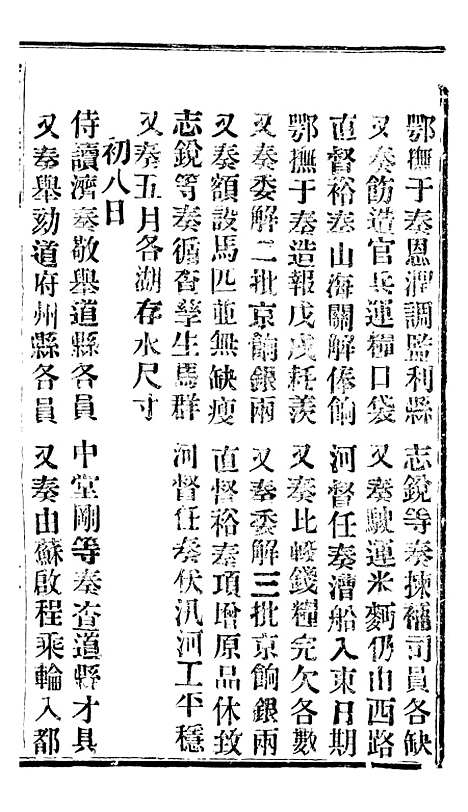 鄂撫于奏恩潤調監利縣　志銳等奏揀補司員各缺
又奏筋造官兵運糧口袋　又奏駛運米麪仍由西路
直督裕奏山海關解俸餉　河督任奏漕船入東日期
鄂撫于奏造報戊戌耗羨　又奏比較錢糧完欠各數
又奏委解二批京餉銀兩　又奏委解三批京餉銀兩
又奏額設馬匹並無缺瘦　直督裕奏項增原品休致
志銳等奏循查孳生馬群　河督任奏伏汛河工平穩
又奏五月各湖存水尺寸
初八日
侍讀濟奏敬舉道縣各員　中堂剛等奏查道縣才具
又奏舉劾道府州縣各員　又奏由蘇啟程乘輪入都